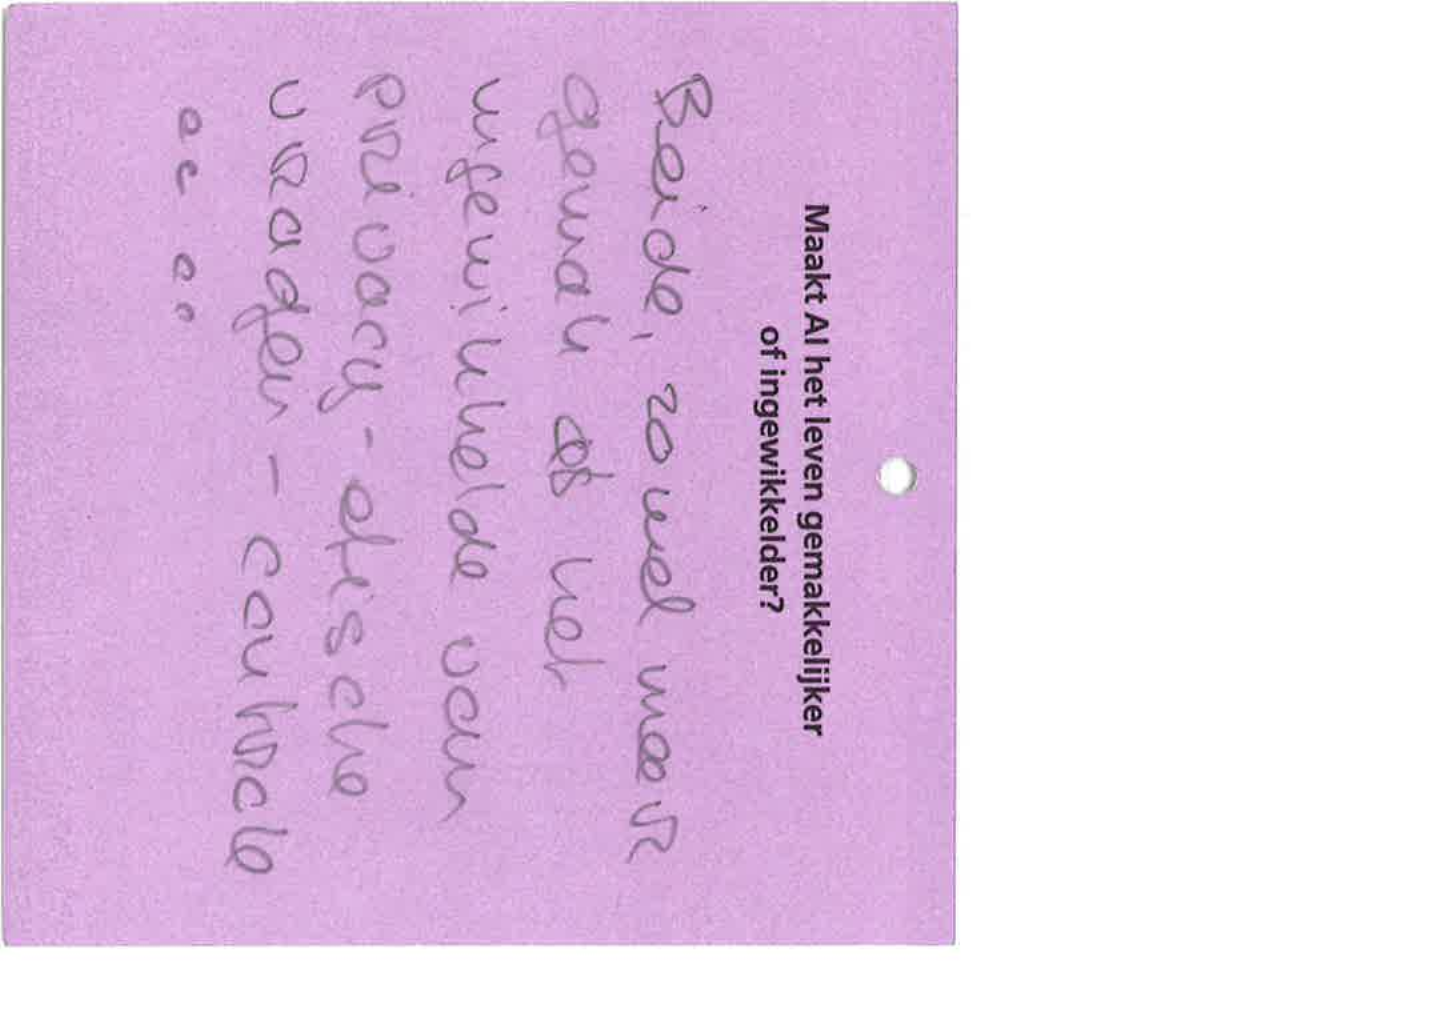 Maakt AI het leven gemakkelijker
of ingewikkelder?
Beide, zowel meer
gemak als het
ingewikkelde van
privacy - etische
vragen - controle